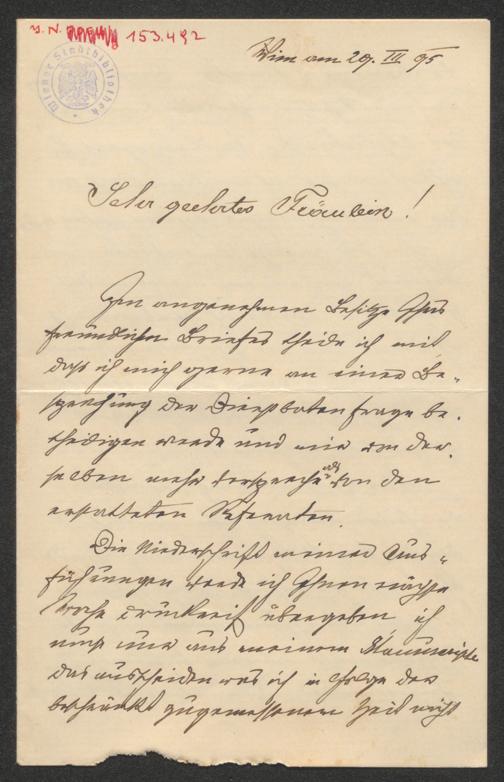 J. N. 153.492
Wiener Stadtbibliothek
Wien am 29. III. 95
Sehr geehrtes Fräulein!
Im angenehmen Besitze Ihres
freundlichen Briefes theile ich mit
daß ich mich gerne an einer Be-
sprechung der Dienstbotenfrage be-
theiligen werde und mir von der-
selben mehr verspreche als von den
erstatteten Referaten.
Die Niederschrift meiner Aus-
führungen werde ich Ihnen nächste
Woche druckreif übergeben ich
muß nur aus meinem Manuscripte
das ausscheiden was ich in Folge der
beschränkt zugemessenen Zeit nicht